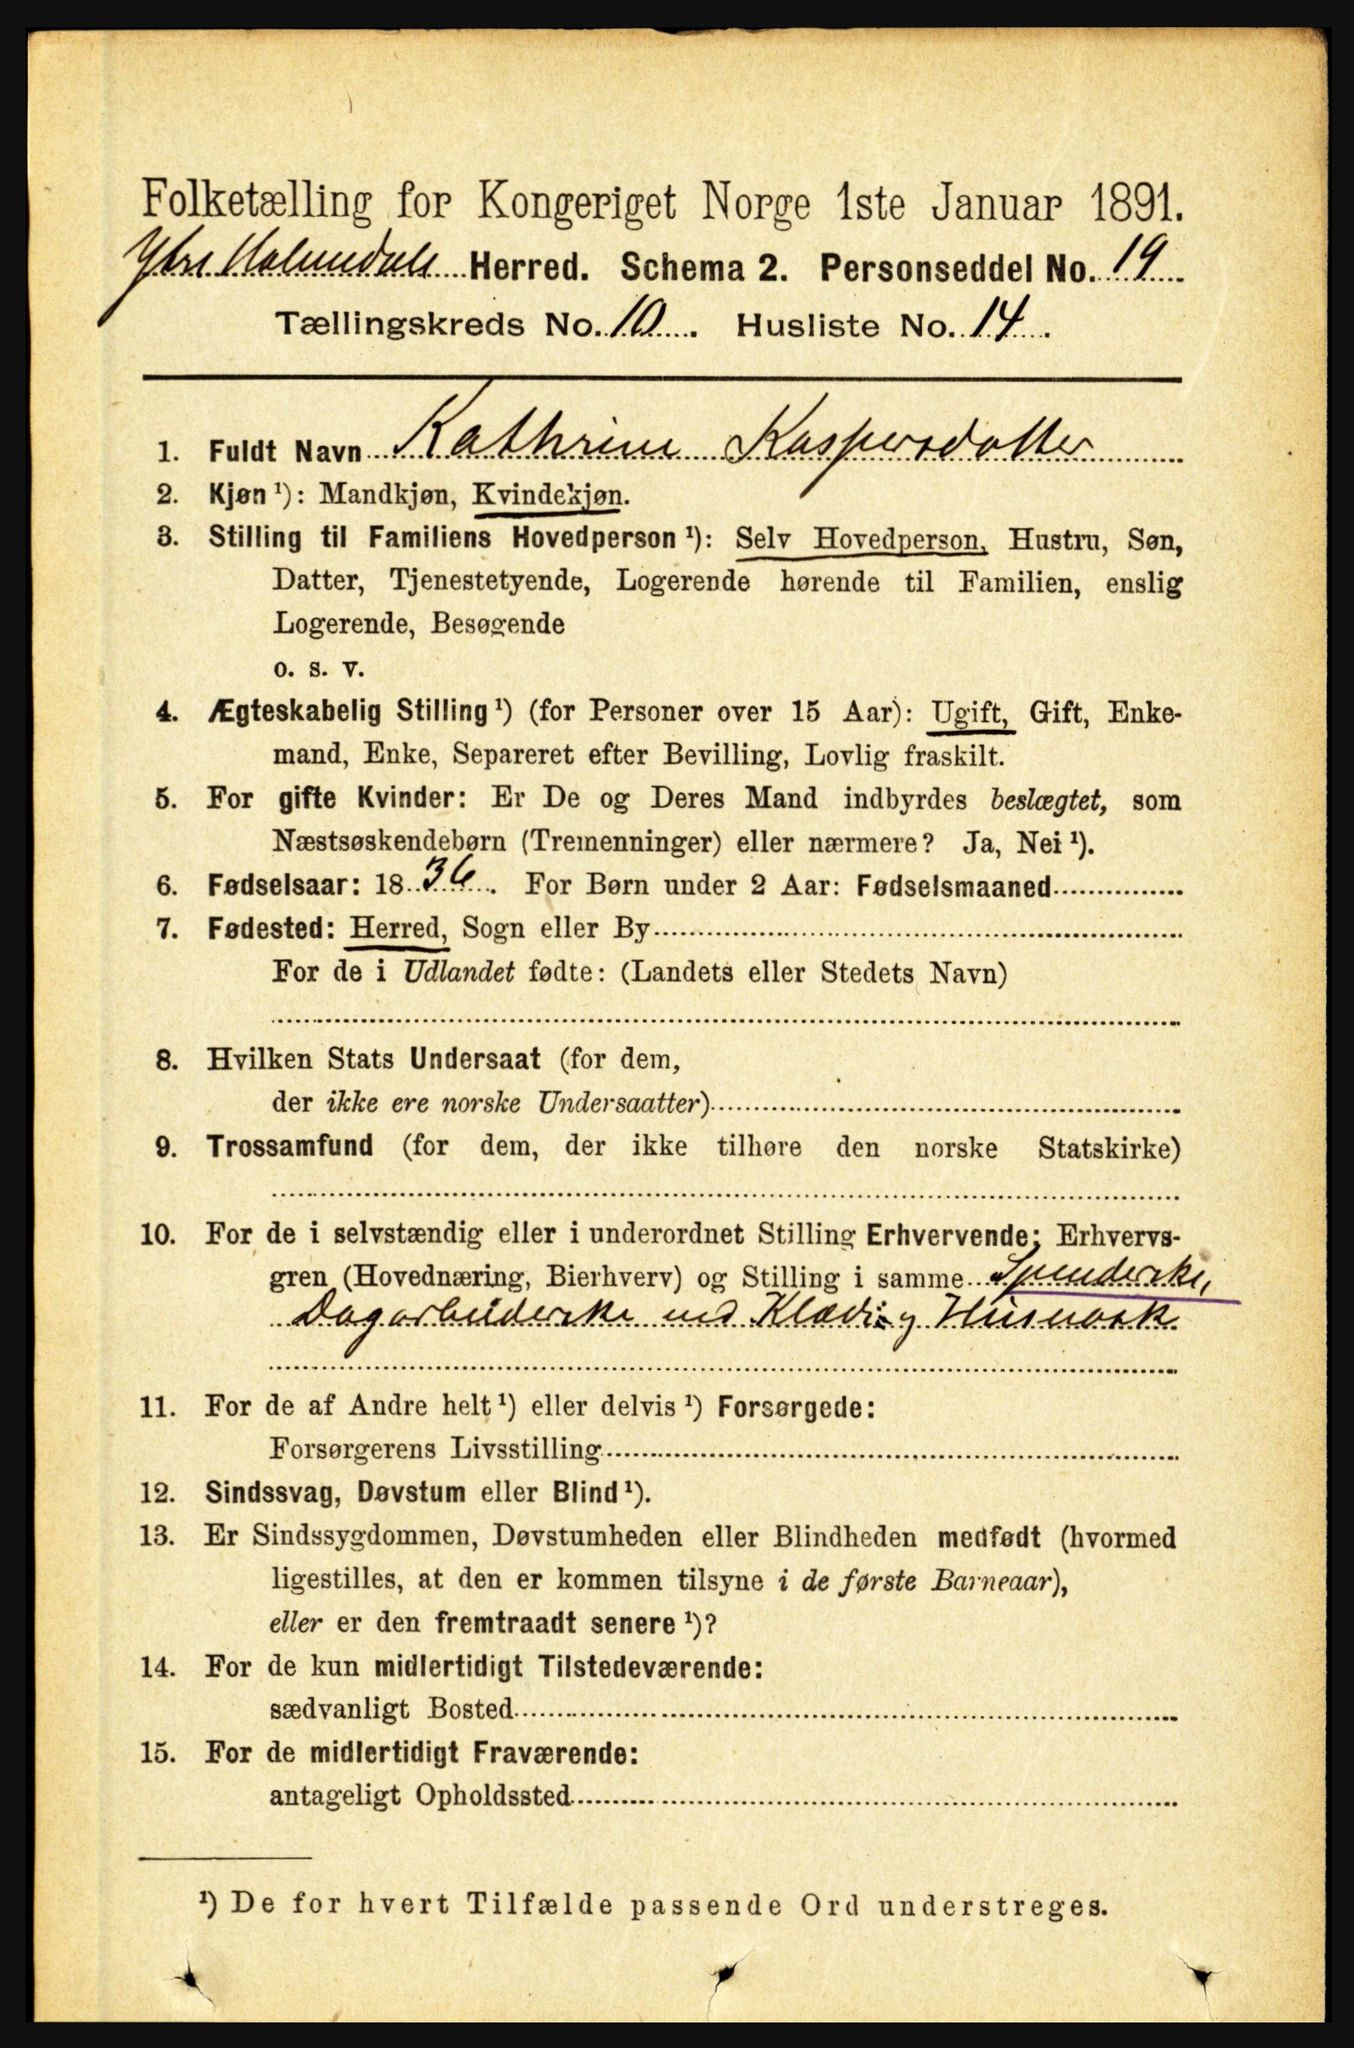 Folketælling for Kongeriget Norge 1ste Januar 1891.
Ytre Holmedals Herred. Schema 2. Personseddel No. 19
Tællingskreds No. 10. Husliste No. 14.
1. Fuldt Navn Kathrine Kaspersdatter
2. Kjøn ¹): Mandkjøn, Kvindekjøn.
3. Stilling til Familiens Hovedperson ¹): Selv Hovedperson, Hustru, Søn,
Datter, Tjenestetyende, Logerende hørende til Familien, enslig
Logerende, Besøgende
o. s. v.
4. Ægteskabelig Stilling ¹) (for Personer over 15 Aar): Ugift, Gift, Enke-
mand, Enke, Separeret efter Bevilling, Lovlig fraskilt.
5. For gifte Kvinder: Er De og Deres Mand indbyrdes beslægtet, som
Næstsøskendebørn (Tremenninger) eller nærmere? Ja, Nei ¹).
6. Fødselsaar: 1836. For Børn under 2 Aar: Fødselsmaaned
7. Fødested: Herred, Sogn eller By
For de i Udlandet fødte: (Landets eller Stedets Navn)
8. Hvilken Stats Undersaat (for dem,
der ikke ere norske Undersaatter)
9. Trossamfund (for dem, der ikke tilhøre den norske Statskirke)
10. For de i selvstændig eller i underordnet Stilling Erhvervende: Erhvervs-
gren (Hovednæring, Bierhverv) og Stilling i samme Spinderske,
Dagarbeiderske ved
11. For de af Andre helt ¹) eller delvis ¹) Forsørgede:
Forsørgerens Livsstilling
12. Sindssvag, Døvstum eller Blind ¹).
13. Er Sindssygdommen, Døvstumheden eller Blindheden medfødt (hvormed
ligestilles, at den er kommen tilsyne i de første Barneaar),
eller er den fremtraadt senere ¹)?
14. For de kun midlertidigt Tilstedeværende:
sædvanligt Bosted
15. For de midlertidigt Fraværende:
antageligt Opholdssted
¹) De for hvert Tilfælde passende Ord understreges.